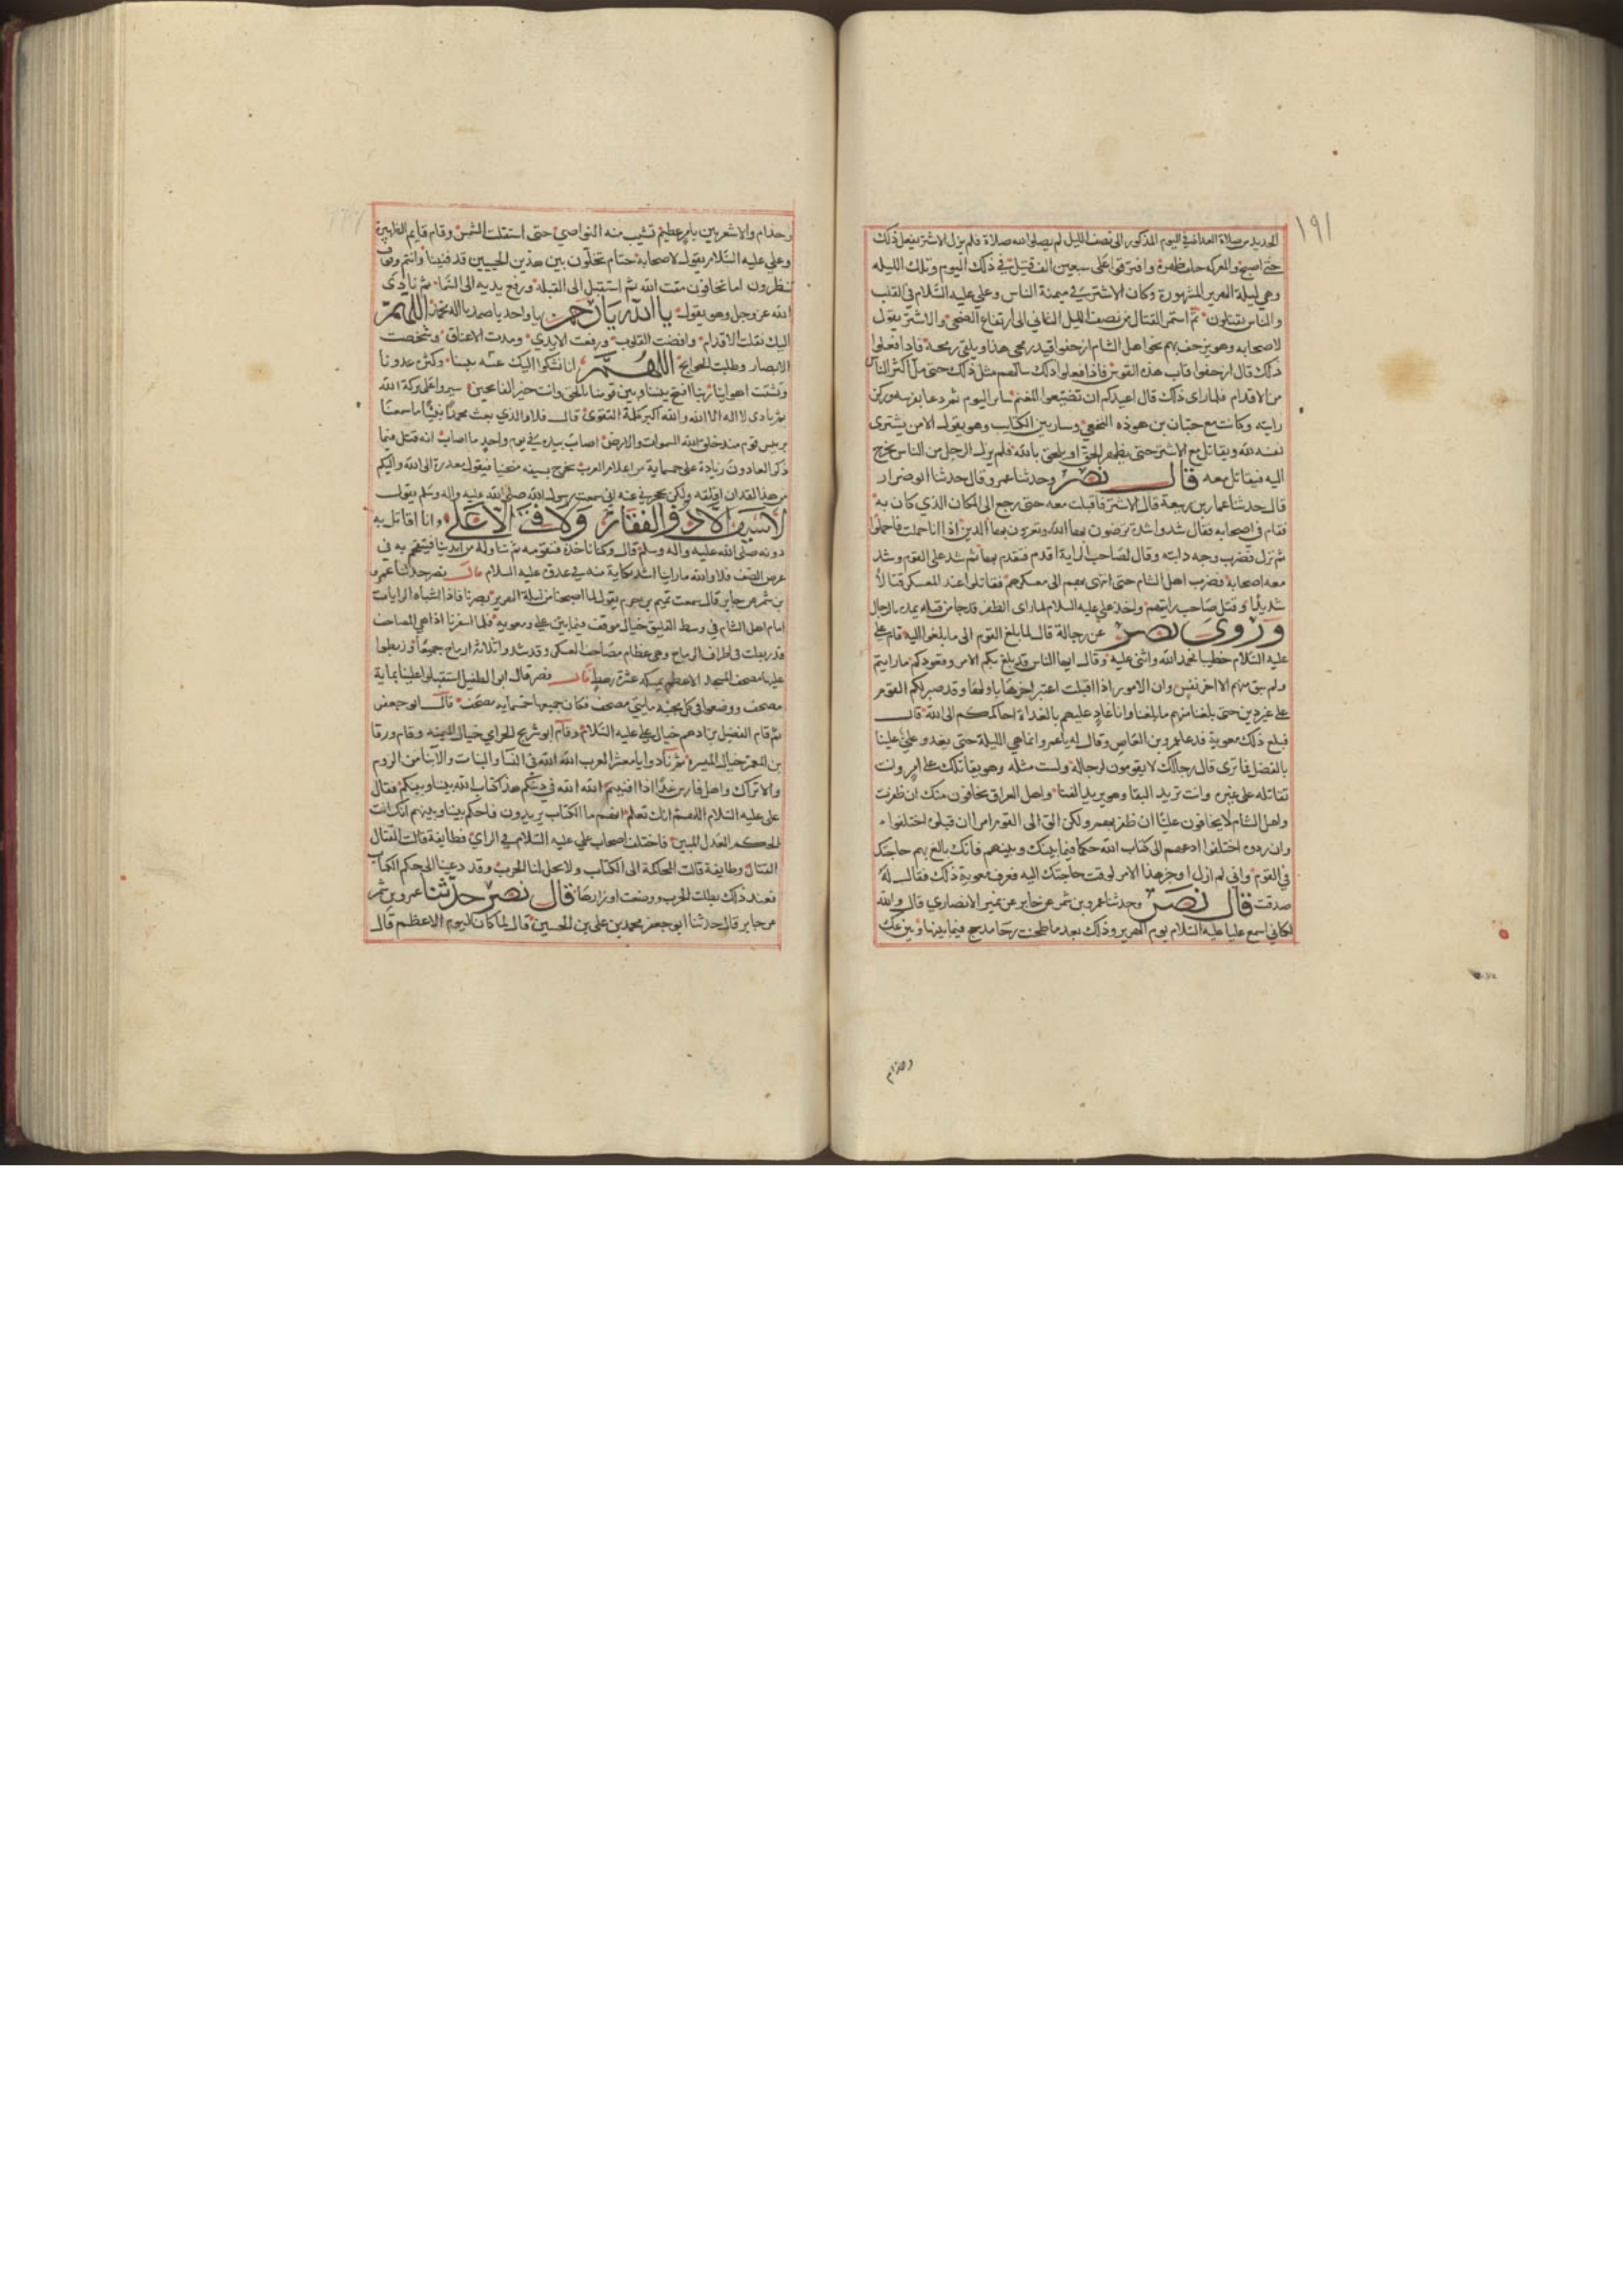 ١٩١
الحديد من صلاة الغداة في اليوم المذكور الى نصف الليل لم يصلوا لله صلاة فلم يزل الاشتر يفعل ذلك
حتى اصبح والمعركه خلف ظهره وافترقوا على سبعين الف قتيل في ذلك اليوم وتلك الليله
وهي ليلة الهرير المشهورة وكان الاشتر في ميمنة الناس وعلي عليه السلام في القلب
والناس يقتتلون ثم استمر القتال من نصف الليل الثاني الى ارتفاع الضحى والاشتر يقول
لاصحابه وهو يزحف بهم نحو اهل الشام ازحفوا قيد رمحي هذا ويلقي رمحه فاذا فعلوا
ذلك قال ازحفوا قاب هذه القوس فاذا فعلوا ذلك سالهم مثل ذلك حتى مل اكثر الناس
من الاقدام فلما راى ذلك قال اعيذكم ان تضيعوا الغنم سائر اليوم ثم دعا بفرسه وركز
رايته وكانت مع حيان بن هوذه النخعي وسار بين الكتايب وهو يقول الا من يشتري
نفسه لله ويقاتل مع الاشتر حتى يظهر الحق او يلحق بالله فلم يزل الرجل من الناس يخرج
اليه فيقاتل معه قال نصر وحدثنا عمرو قال حدثنا ابو ضرار
قال حدثنا عمار بن ربيعة قال الاشتر فاقبلت معه حتى رجع الى المكان الذي كان به
فقام في اصحابه فقال شدوا شدة ترضون بها الله وتعزون بها الدين اذا انا حملت فاحملوا
ثم نزل فضرب وجه دابته وقال لصاحب الراية اقدم فتقدم بها ثم شد على القوم وشد
معه اصحابه فضرب اهل الشام حتى انتهى بهم الى معسكرهم فقاتلوا عند المعسكر قتالا
شديدا وقتل صاحب رايتهم واخذ علي عليه السلام لما راى الظفر قد جا من قبله يمده بالرجال
وروى نصر عن رجاله قال لما بلغ القوم الى ما بلغوا اليه قام علي
عليه السلام خطيبا فحمد الله واثنى عليه وقال ايها الناس قد بلغ بكم الامر وبعدوكم ما رايتم
ولم يبق منهم الا اخر نفس وان الامور اذا اقبلت اعتبر اخرها باولها وقد صبر لكم القوم
على غير دين حتى بلغنا منهم ما بلغنا وانا غاد عليهم بالغداة احاكمكم الى الله قال
فبلغ ذلك معوية فدعا عمرو بن العاص وقال له يا عمرو انما هي الليلة حتى يغدو علي علينا
بالفصل فما ترى قال رجالك لا يقومون لرجاله ولست مثله وهو يقاتلك على امر وانت
تقاتله على غيره وانت تريد البقا وهو يريد الفنا واهل العراق يخافون منك ان ظفرت
واهل الشام لا يخافون عليا ان ظفر بهم ولكن الق الى القوم امرا ان قبلوه اختلفوا
وان ردوه اختلفوا ادعهم الى كتاب الله حكما فيما بينك وبينهم فانك بالغ بهم حاجتك
في القوم واني لم ازل اوخر هذا الامر لوقت حاجتك اليه فعرف معوية ذلك فقال له
صدقت قال نصر وحدثنا عمرو بن شمر عن جابر عن نمير الانصاري قال والله
لكاني اسمع عليا عليه السلام يوم الهرير وذلك بعد ما طحنت رحا مذحج فيما بينها وبين عك
وجذام
وجذام والاشعريين بامر عظيم تشيب منه النواصي حتى استقلت الشمس وقام قايم الظهيرة
وعلي عليه السلام يقول لاصحابه حتام نخلون بين هذين الحيين قد فنينا وانتم وقوف
تنظرون اما تخافون مقت الله ثم استقبل الى القبلة ورفع يديه الى السما ثم نادى
الله عز وجل وهو يقول يا الله يا رحمن يا واحد يا صمد يا اله محمد اللهم
اليك نقلت الاقدام وافضت القلوب ورفعت الايدي ومدت الاعناق وشخصت
الابصار وطلبت الحوايج اللهم انا نشكوا اليك غيبة نبينا وكثرة عدونا
وتشتت اهوائنا ربنا افتح بيننا وبين قومنا بالحق وانت خير الفاتحين سيروا على بركة الله
ثم نادى لا اله الا الله والله اكبر كلمة التقوى قال فلا والذي بعث محمدا نبيا ما سمعنا
برييس قوم منذ خلق الله السموات والارض اصاب بيده في يوم واحد ما اصاب انه قتل فيما
ذكر العادون زيادة على خمسماية من اعلام العرب يخرج بسيفه منحنيا فيقول معذرة الى الله واليكم
من هذا لقد ان اقلقه ولكن يحجزني عنه اني سمعت رسول الله صلى الله عليه واله وسلم يقول
لا سيف الا ذو الفقار ولا فتى الا علي وانا اقاتل به
دونه صلى الله عليه واله وسلم قال وكنا ناخذه فنقومه ثم يتناوله من ايدينا فيقتحم به في
عرض الصف فلا والله ما راينا اشد نكاية منه في عدوه عليه السلام قال نصر حدثنا عمرو
بن شمر عن جابر قال سمعت تميم بن حريم يقول لما اصبحنا من ليلة الهرير نصرنا فاذا اشباه الرايات
امام اهل الشام في وسط الفيلق حيال موقف فيما بين علي ومعويه فلما اسفرنا اذا هي المصاحف
قد ربطت في اطراف الرماح وهي عظام مصاحف العسكر وقد شدوا ثلاثة ارماح جميعا وربطوا
عليها مصحف المسجد الاعظم يمسكه عشرة رهط قال نصر قال ابو الطفيل استقبلوا علينا بماية
مصحف ووضعوا في كل مجنبه مايتي مصحف فكان جميعها خمسمايه مصحف قال ابو جعفر
ثم قام الفضيل بن ادهم حيال علي عليه السلام وقام ابو شريح الحرامي حيال الميمنه وقام ورقا
بن المعمر حيال الميسره ثم نادوا يا معشر العرب الله الله في النسا والبنات والابنا من الروم
والاتراك واهل فارس غدا اذا افنيتم الله الله في دينكم هذا كتاب الله بيننا وبينكم فقال
علي عليه السلام اللهم انك تعلم انهم ما الكتاب يريدون فاحكم بيننا وبينهم انك انت
الحكم العدل المبين فاختلف اصحاب علي عليه السلام في الراي فطايفة قالت القتال
القتال وطايفة قالت المحاكمة الى الكتاب ولا يحل لنا الحرب وقد دعينا الى حكم الكتاب
فعند ذلك بطلت الحرب ووضعت اوزارها قال نصر حدثنا عمرو بن شمر
عن جابر قال حدثنا ابو جعفر محمد بن علي بن الحسين قال لما كان اليوم الاعظم قال